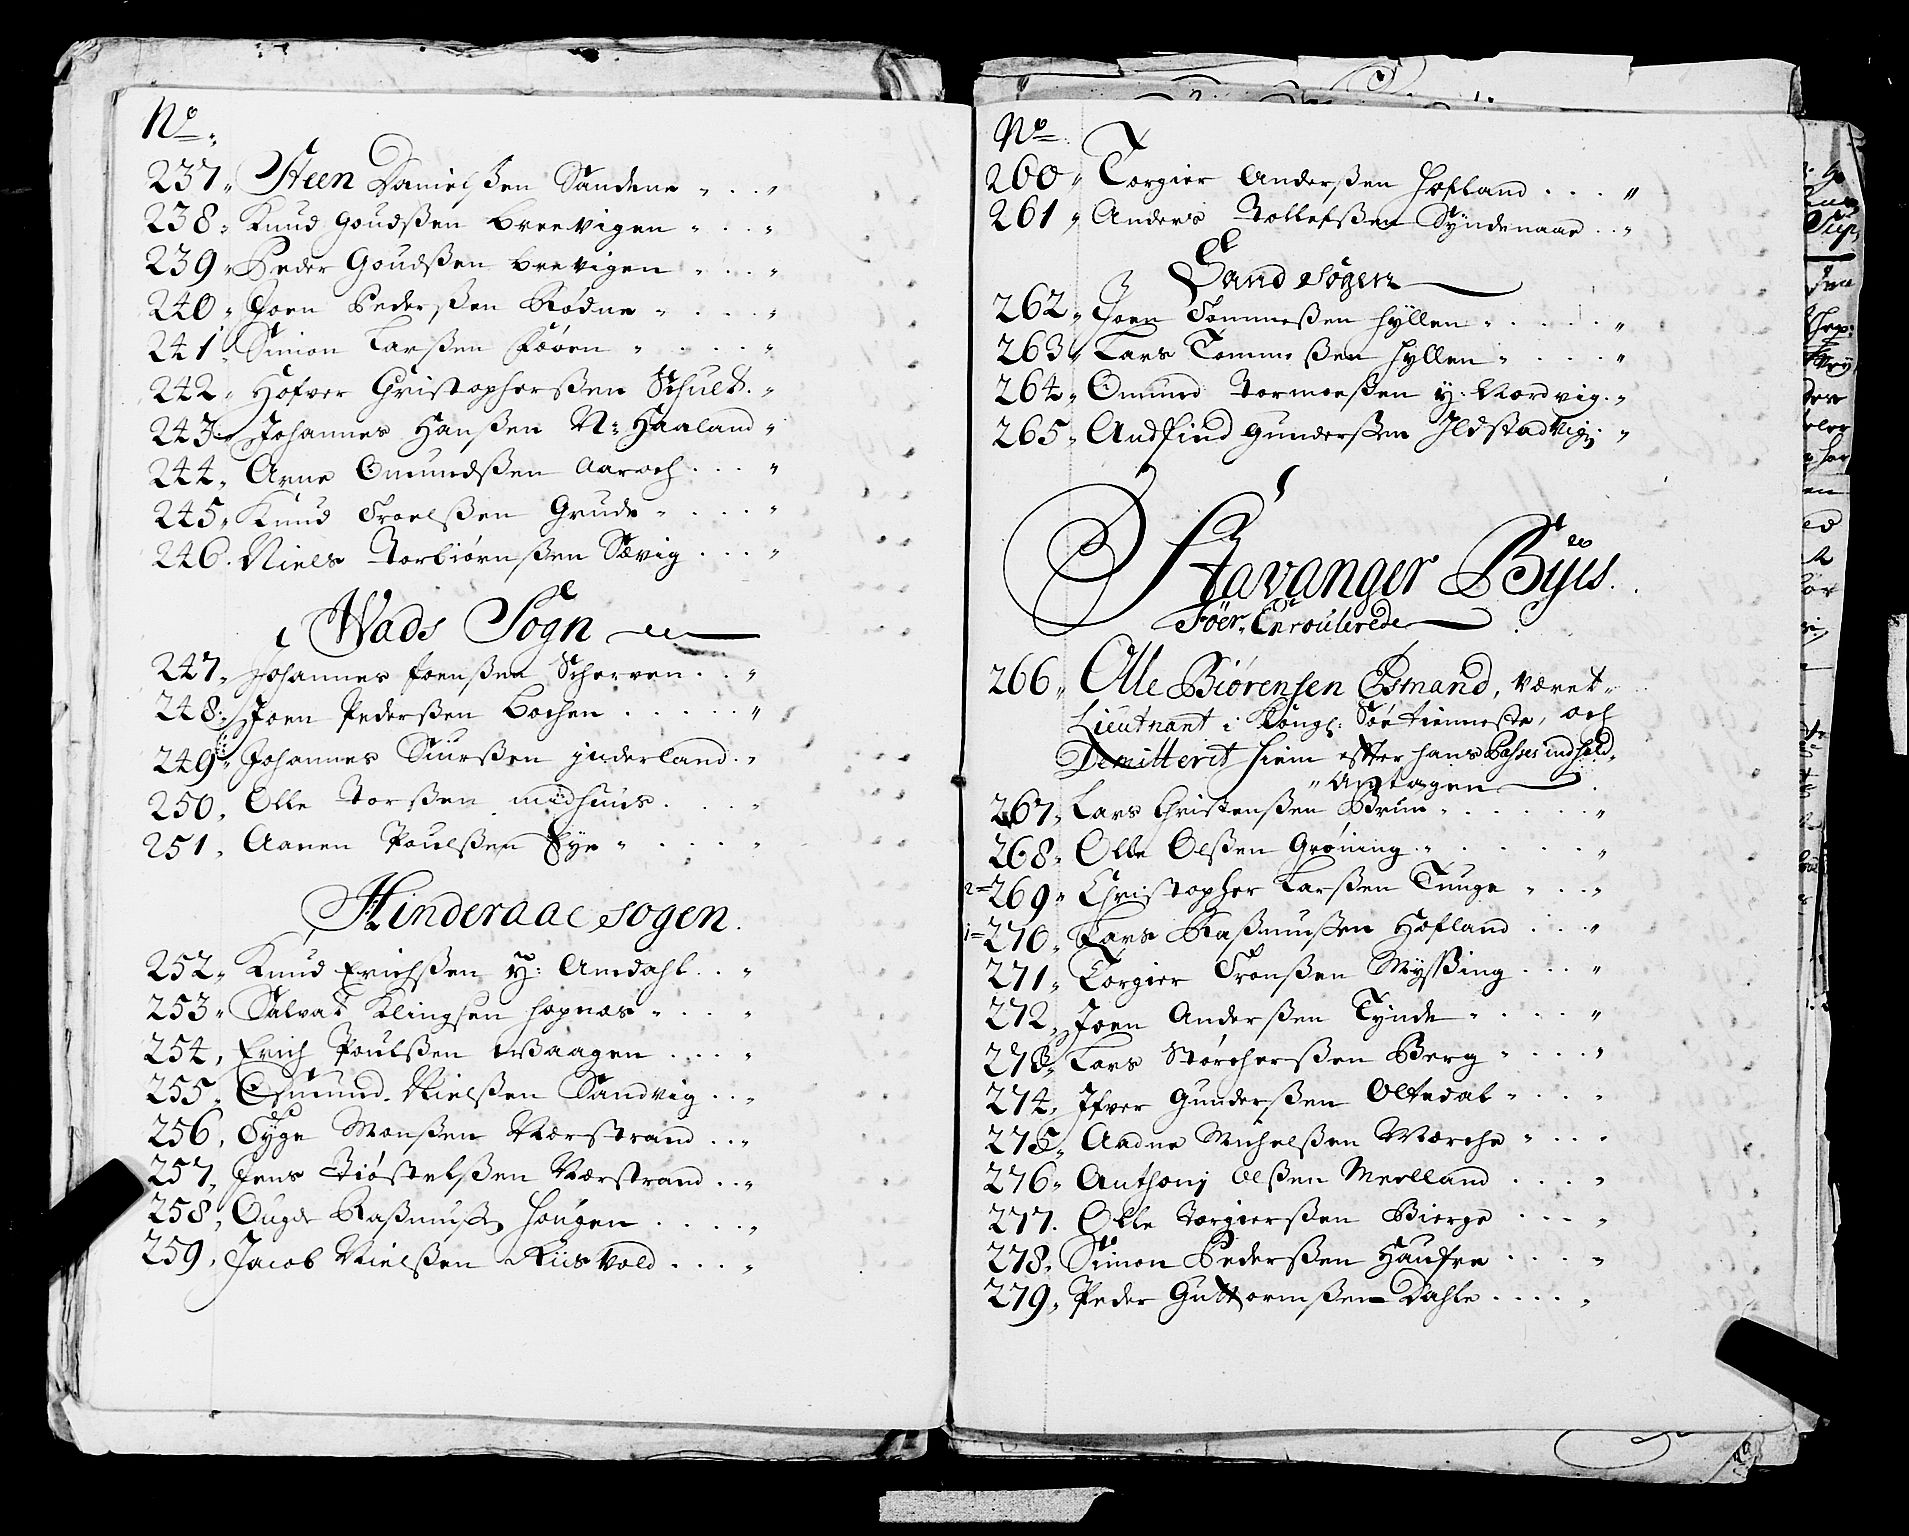 No.
237. Steen Danielßen Sandene
238. Knud Goudßen breevigen
239. Peder Goudßen breevigen
240. Joen Pederßen Rødne
241. Simon Larßen
242. Hofver Christopherßen Schult
243. Johannes Hanßen N: Haaland
244. Arne Omundßen Aaroch
245. Knud Troelßen Grude
246. Niels Torbiørnßen Sævig
Wads Sogn
247. Johannes Joenßen Scherven
248. Joen Pederßen Bochen
249. Johannes Siurßen jnderland
250. Olle Torßen midhuus
251. Aanen Poulßen Eye
Hinderaae sogen
252. Knud Erichßen Y: Amdahl
253. Salvat Klingsen hapnæs
254. Erich Poulßen
255. Osmund Nielßen Sandvig
256. Tyge Monßen Nærstrand
257. Jens Kiøstelßen Nærstrand
258. Ougde Raßmusß Hougen
259. Jacob Nielßen Riisvold
No
260. Torgier Anderßen Hofland
261. Anders Tollefßen Syndenaae
Sand Sogen
262. Joen Tommeßen Hyllen
263. Lars Tommeßen Hyllen
264. Omund Tormoeßen Y: Nordvig
265. Andfind Gunderßen Ildstadvig
Stavanger Byes
Föer Enroulerede
266. Olle Biörensen Osmand, været
Lieutnant i Kongl: Söe tienneste, och
Demitterit hiem effter hans Passes indhold
Aftagen
267. Lars Christenßen Brun
268. Olle Olßen Grøning
2= 269. Christopher Larßen Tunge
1= 270. Lars Raßmusßen Hofland
271. Torgier Tronßen Myssing
272. Joen Anderßen Tynde
273. Lars Størcherßen Berg
274. Ifver Gunderßen Oltedal
275. Aadne Michelßen Værche
276. Anthonj Olßen Meelland
277. Olle Torgierßen Bierge
278. Simon Pederßen Haufre
279. Peder Guttormßen Dahle